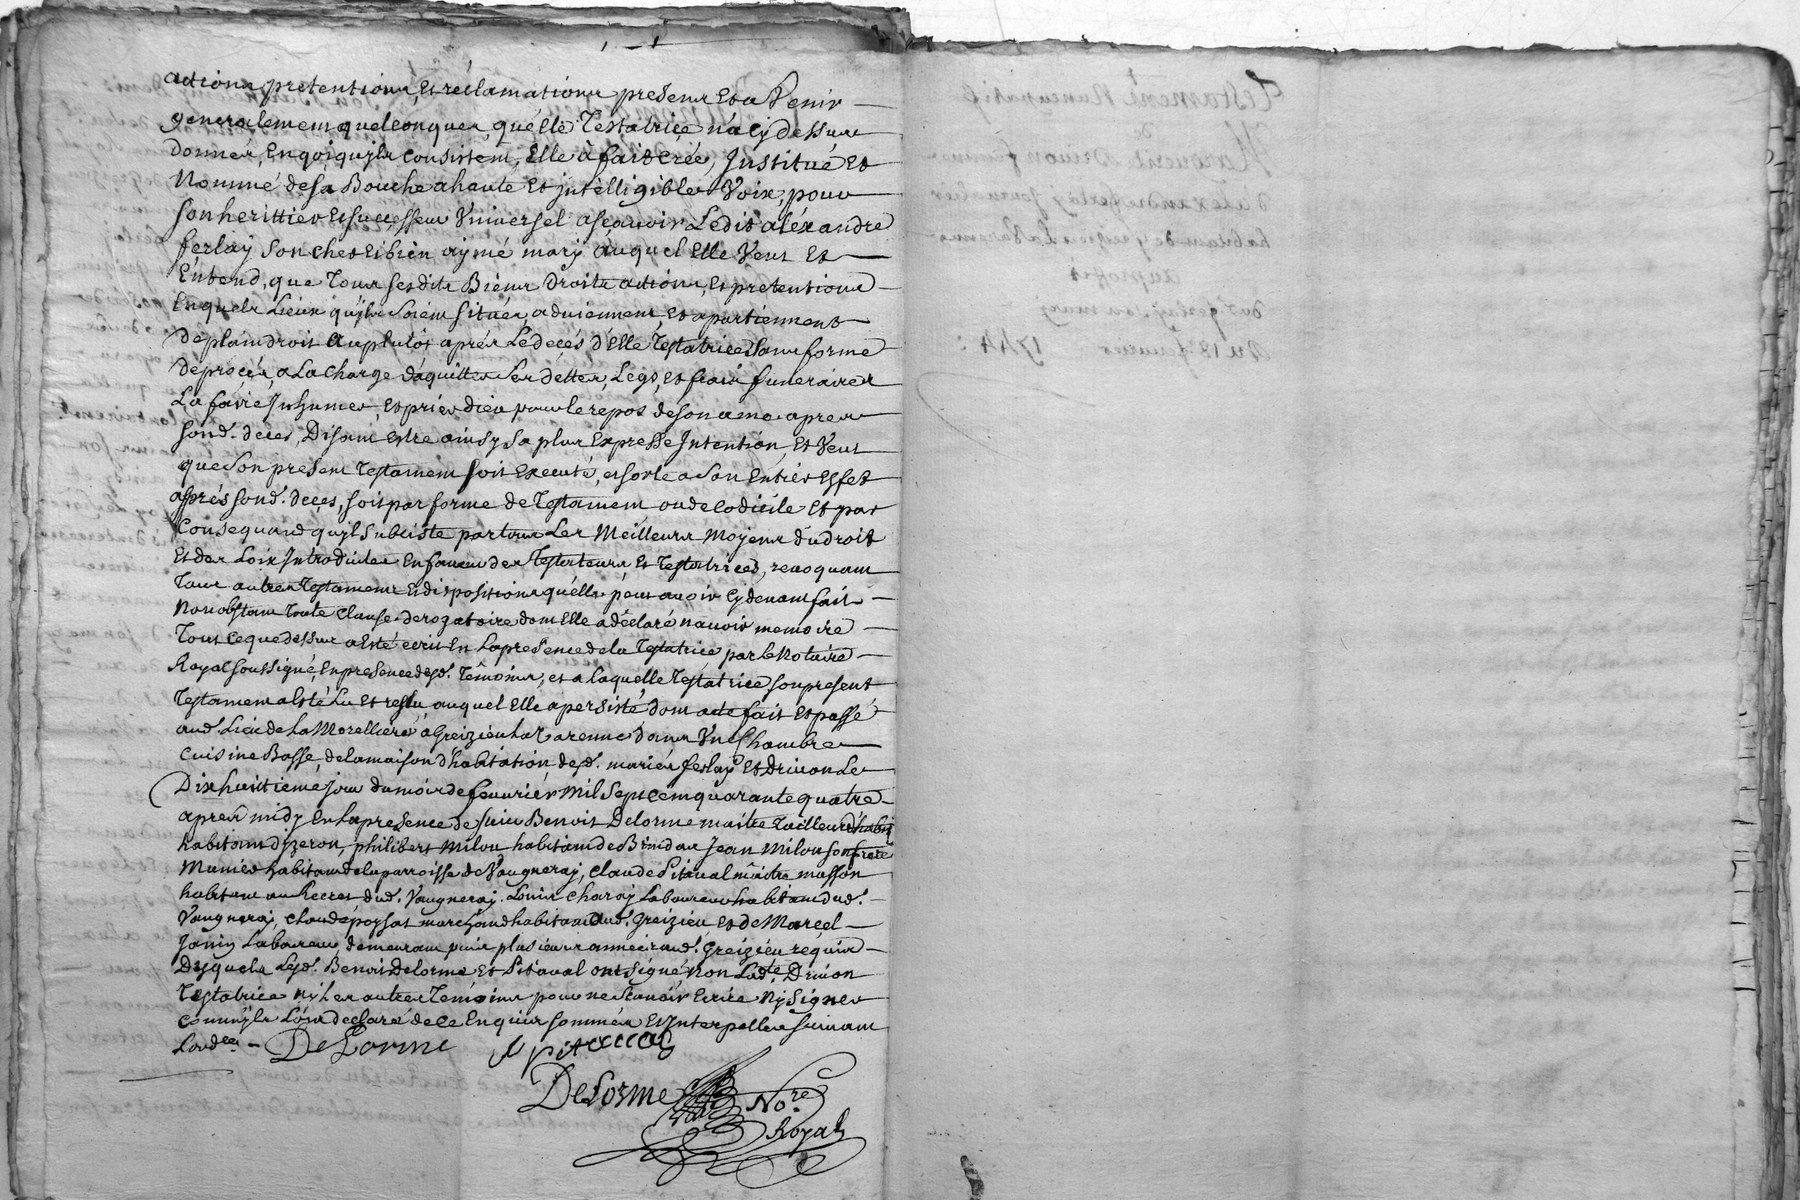 actions pretentions, et réclamations presens et a Venir
generalement quelconques, quélle Testatrice n'a cy dessus
donnés, En qoi quyls consistent, Elle à fait crée, Institué et
Nommé de sa Bouche a haute et intélligibles Voix, pour
son herittier et successeur Vniversel ascauoir Ledit aléxandre
ferlay son cher et bien aymé mary auquel Elle Veut Et
Entend, que Tous sesdits Biens Droits actions, et pretentions
En quels Lieux quyls soient situés, aduiennent, et apartiennent
de plain droit au plutôt aprés Le decés d'Elle Testatrice sans forme
de procés, a La charge d'aquitter ses dettes, Legs, et frais funeraires
La faire Inhumer, et prier dieu pour le repos de son ame apres
sond. deces, Disant estre ainsy sa plus Expresse Intention, et Veut
que son present Testament soit Executé, et sorte a son Entier Effet
aprés sond. deçes, soit par forme de Testament ou de codicile et par
Consequand quyl subsiste par tous Les Meilleurs Moyens du droit
et des Loix Introduites En faueur des Testateurs Et Testatrices, reuoquant
Tous autres Testamens et dispositions quélle peut auoir cy deuant fait
Nonobstant Toute Clause derogatoire dont Elle a déclaré n'auoir memoire
Tout ce que dessus a Esté ecrit En La presence de la Testatrice par Le Notaire
Royal soussigné, En presence desd. Témoins, et a Laquelle Testatrice son present
Testament a Esté Lu et reslu, auquel Elle a persisté dont acte fait Et passé
aud. Lieu de La Morelliere a Greizieu La Varenne dans Vne Chambre
Cuisine Basse, de la maison d'habitation desd. mariés ferlay et Driuon Le
Dixhuitieme jour du mois de feuurier Mil Sept cent quarante quatre
apres midy En La presence de sieur Benoit Delorme maitre Tailleur d'habit
habitant d'yzeron, philibert Milou habitant de Brindas Jean Milou son frere
Munier habitant de la parroisse de Vaugneray, Claude Pitaual maitre masson
habitant au Recret dud. Vaugneray. Louis Charay Laboureur habitant dud.
Vaugneray, Claude poysat marchand habitant aud. Greizieu et de Marcel
Janin Laboureur demeurant puis plusieurs années aud. Greizieu requis
Desquels Lesd. Benoit Delorme et Pitaual ont signé non Lad.te Driuon
Testatrice ny Les autres Temoins pour ne scauoir Ecrire Ny signer
comm'yls L'ont declaré de ce Enquis sommés Et Interpellés suiuant
Lord.ce - DeLorme pitaual
DeLorme No.re
Royal
Testament Nuncupatif
de
driuon femme
d'alexandre ferlay journalier
habitant de greizieu La Varenne
au profit
dud. ferlay son mary
Du 18.e feurier 1744 :